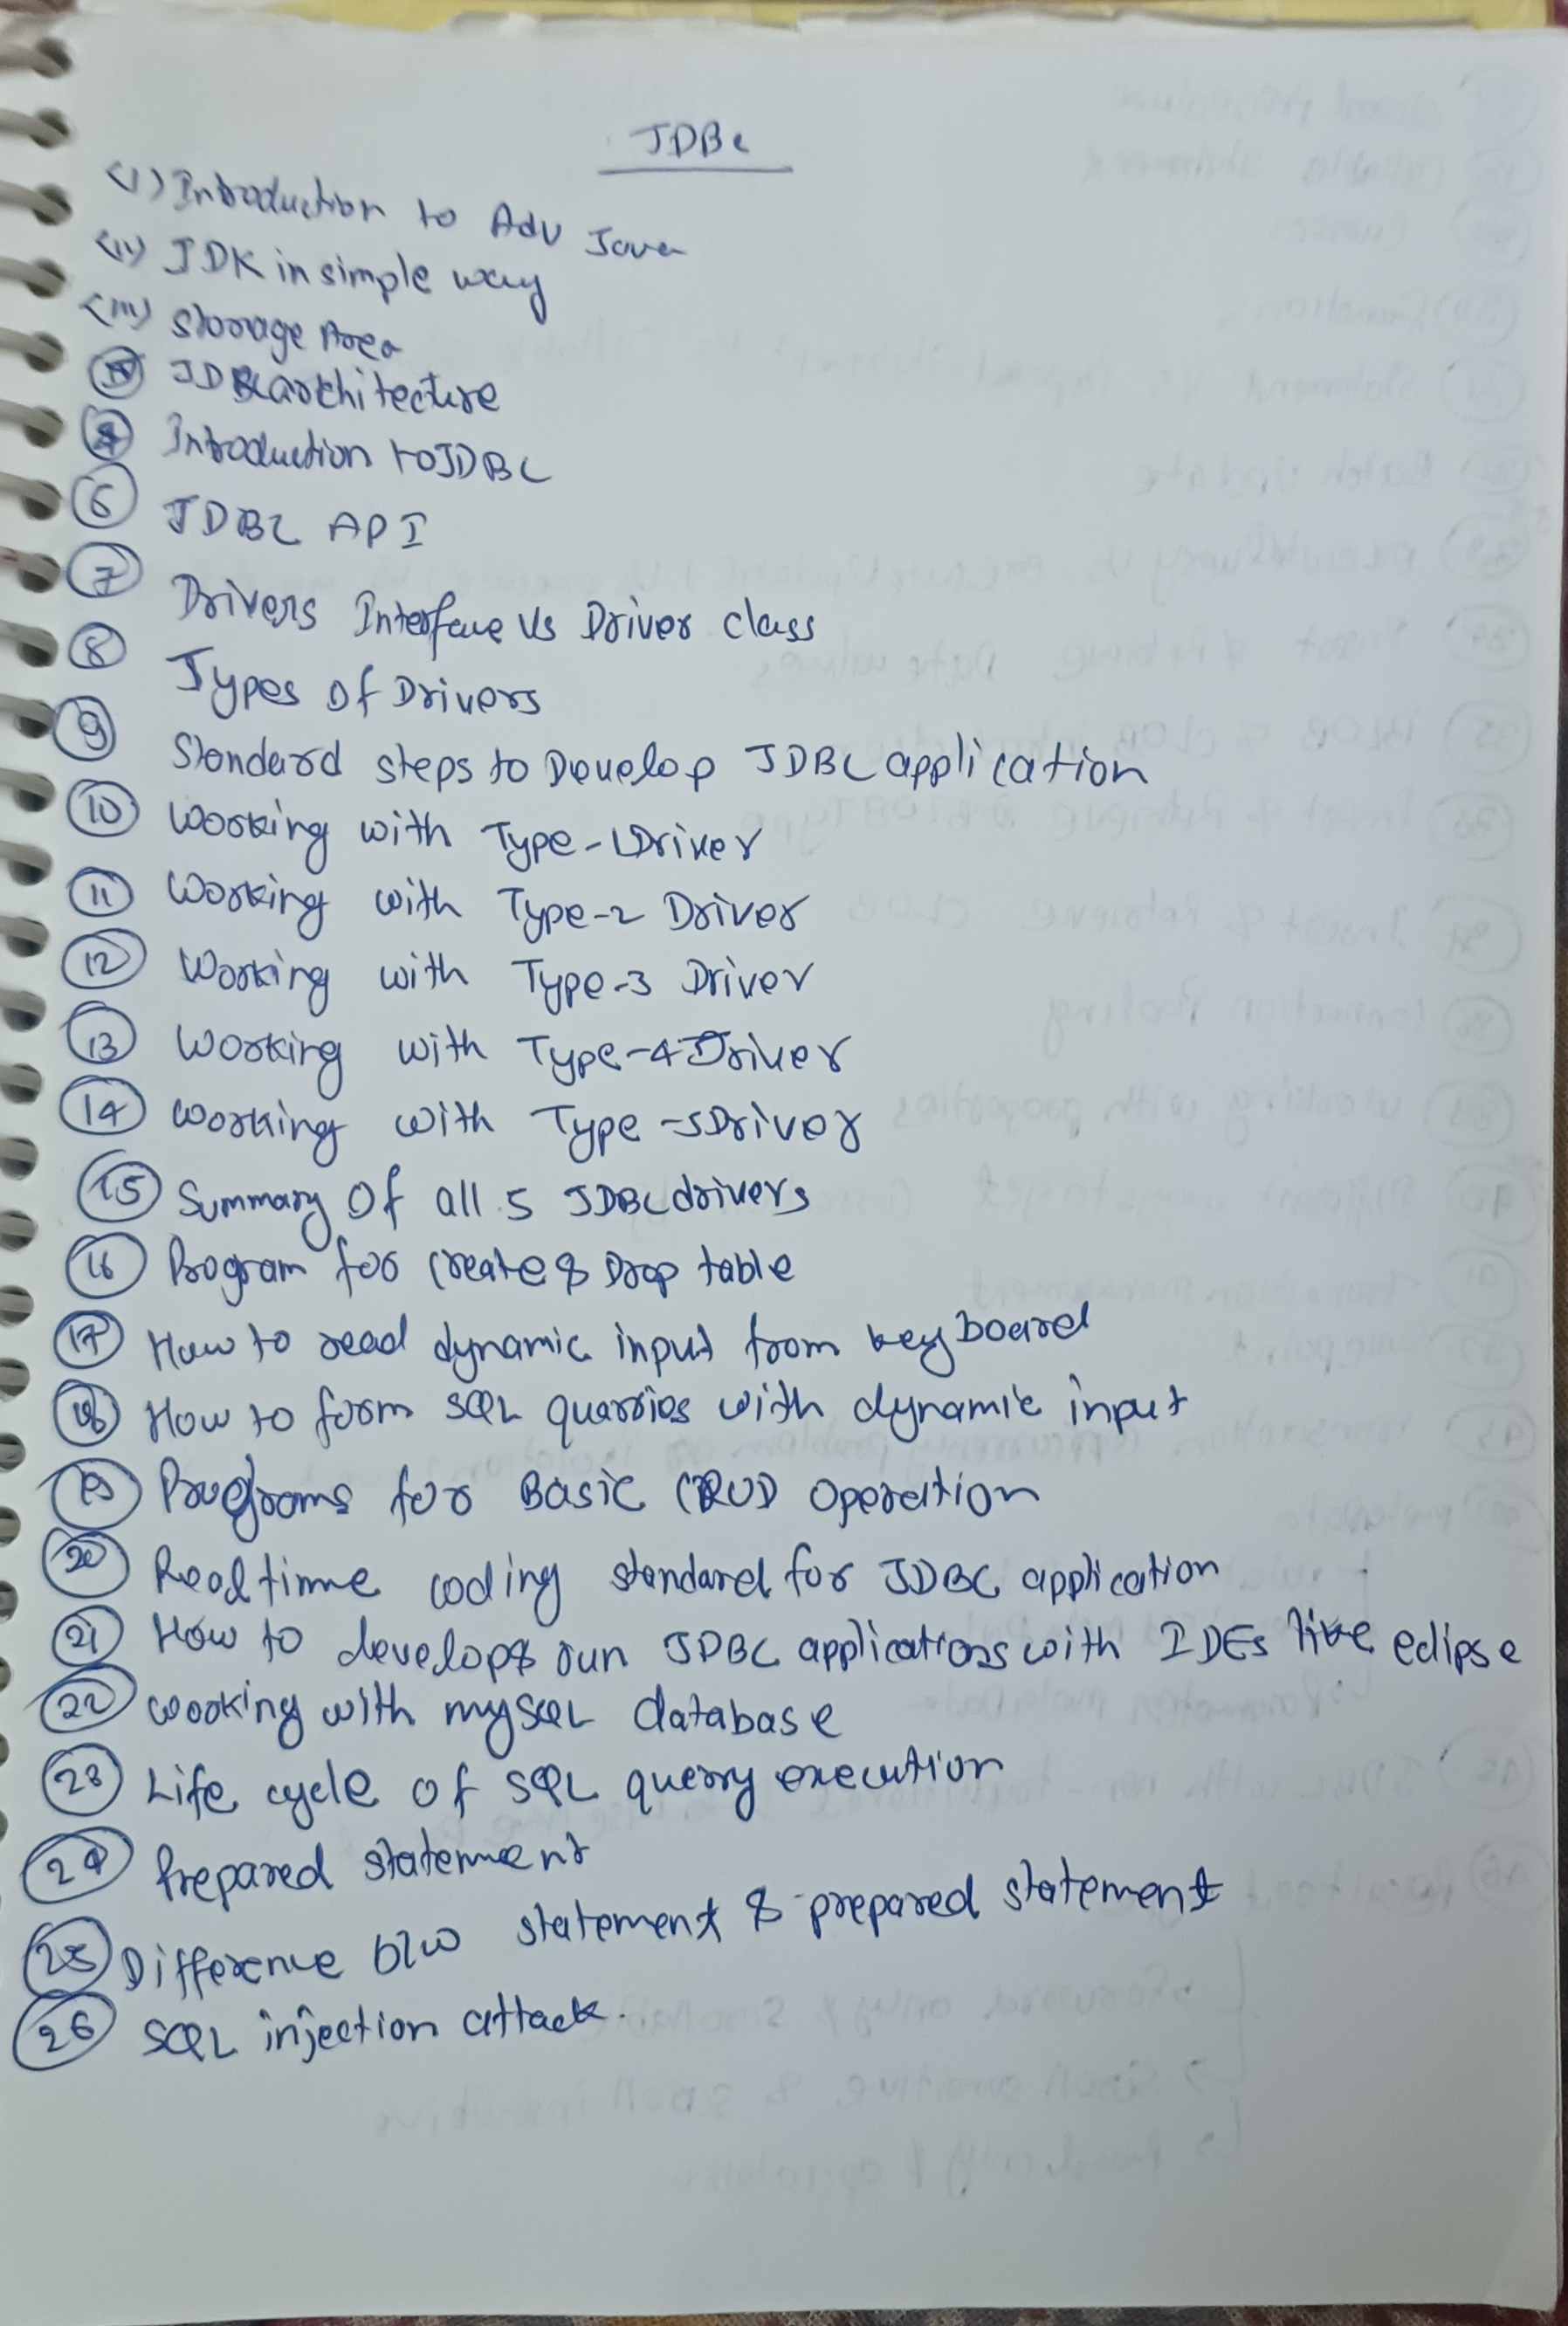 JDBC
<i> Introduction to Adv Java
<ii> JDK in simple way
<iii> Storage Area
4 JDBC architecture
5 Introduction to JDBC
6 JDBC API
7 Drivers Interface Vs Driver class
8 Types of Drivers
9 Standard steps to Develop JDBC application
10 Working with Type-1 Driver
11 Working with Type-2 Driver
12 Working with Type-3 Driver
13 Working with Type-4 Driver
14 Working with Type-5 Driver
15 Summary Of all 5 JDBC drivers
16 Program for create & Drop table
17 How to read dynamic input from keyboard
18 How to form SQL quarries with dynamic input
19 Programs for Basic CRUD operation
20 Real time coding standard for JDBC application
21 How to develop & run JDBC applications with IDEs like eclipse
22 working with mysQL database
23 Life cycle of SQL query execution
24 Prepared statement
25 Difference b/w statement & prepared statement
26 SQL injection attack.